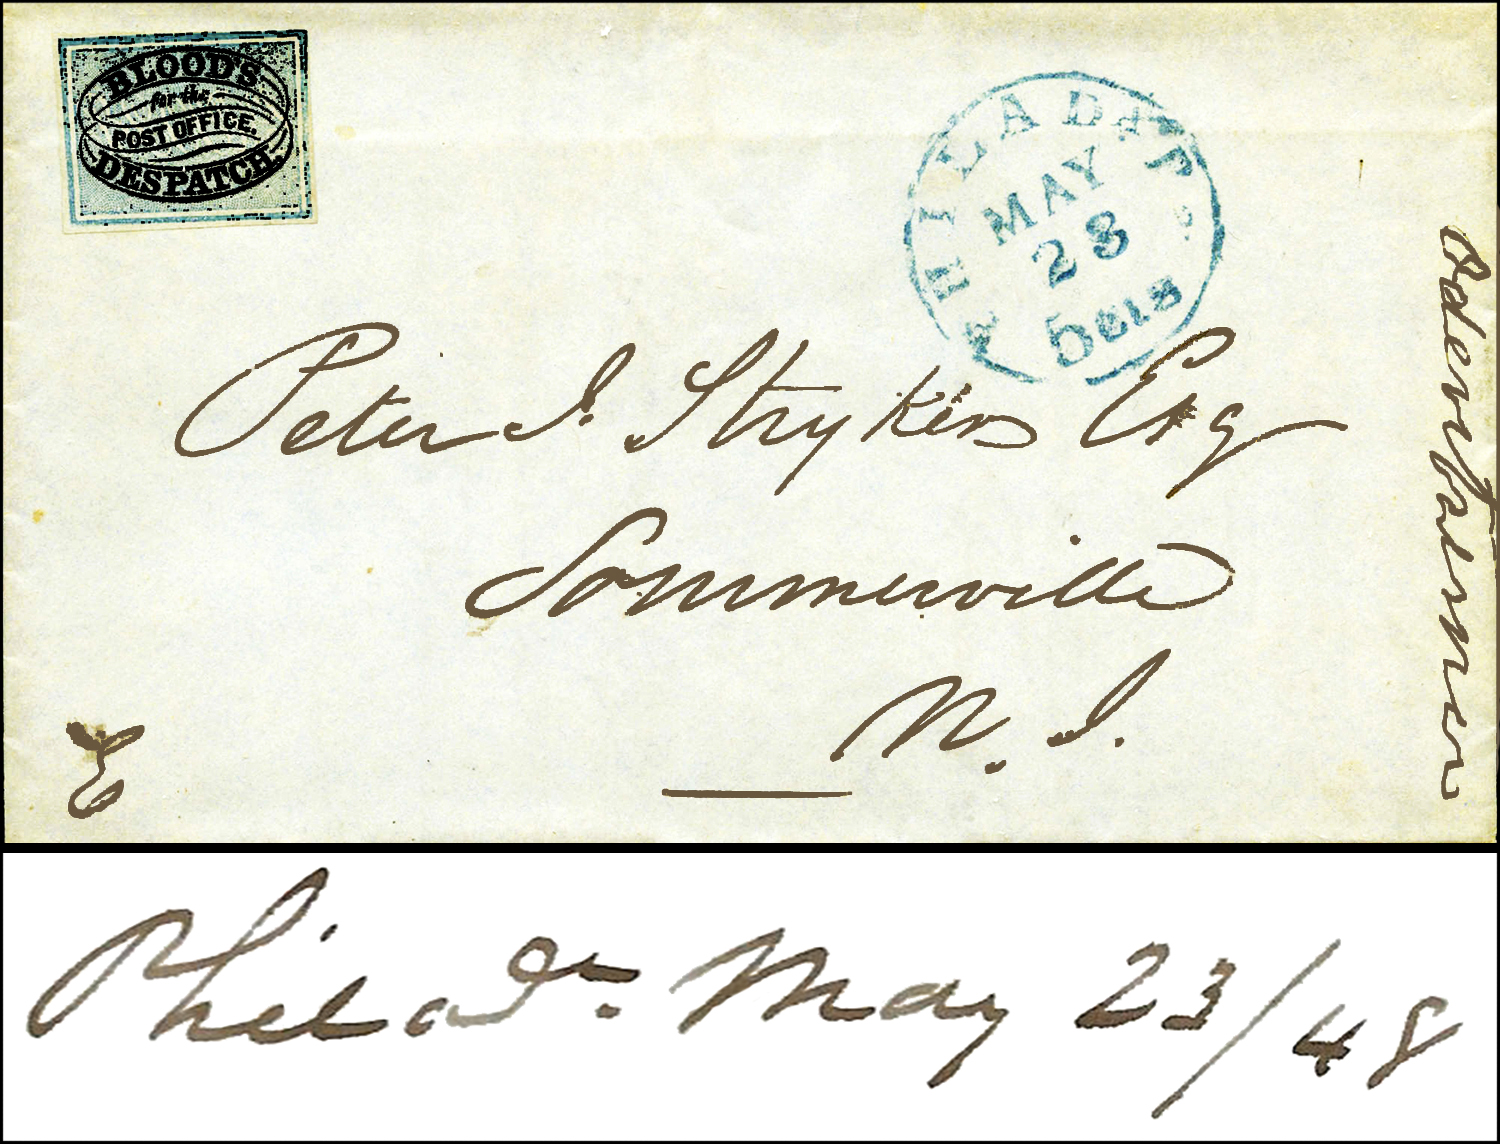 BLOOD'S
for the
POST OFFICE.
DESPATCH.
PHILADA Pa
MAY
23
5cts
Peter J. Stryker Esq
Sommerville
N. J.
E
Odenheimer
Philada. May 23/48